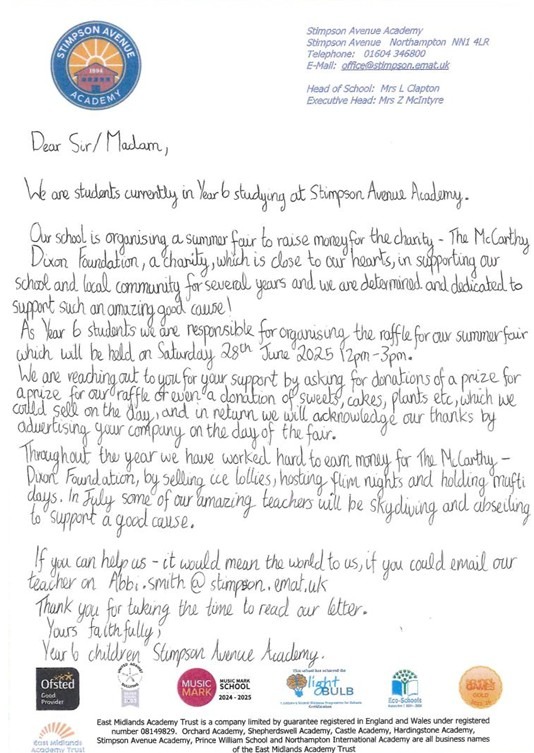 STIMPSON AVENUE
1894
ACADEMY
Stimpson Avenue Academy
Stimpson Avenue Northampton NN1 4LR
Telephone: 01604 346800
E-Mail: office@stimpson.emat.uk
Head of School: Mrs L Clapton
Executive Head: Mrs Z McIntyre
Dear Sir/Madam,
We are students currently in Year 6 studying at Stimpson Avenue Academy.
Our school is organising a summer fair to raise money for the charity - The McCarthy
Dixon Foundation, a charity, which is close to our hearts, in supporting our
school and local community for several years and we are determined and dedicated to
support such an amazing good cause!
As Year 6 students we are responsible for organising the raffle for our summer fair
which will be held on Saturday 28th June 2025 12pm-3pm.
We are reaching out to you for your support by asking for donations of a prize for
a prize for our raffle or even a donation of sweets, cakes, plants etc, which we
could sell on the day, and in return we will acknowledge our thanks by
advertising your company on the day of the fair.
Throughout the year we have worked hard to earn money for The McCarthy -
Dixon Foundation, by selling ice lollies, hosting flim nights and holding mufti
days. In July some of our amazing teachers will be skydiving and abseiling
to support a good cause.
If you can help us - it would mean the world to us, if you could email our
teacher on Abbi.smith@stimpson.emat.uk
Thank you for taking the time to read our letter.
Yours faithfully,
Year 6 children Stimpson Avenue Academy.
Ofsted
Good
Provider
MUSIC
MARK
MUSIC MARK
SCHOOL
2024 - 2025
light
BULB
Eco-Schools
GOLD
East Midlands
Academy Trust
East Midlands Academy Trust is a company limited by guarantee registered in England and Wales under registered
number 08149829. Orchard Academy, Shepherdswell Academy, Castle Academy, Hardingstone Academy,
Stimpson Avenue Academy, Prince William School and Northampton International Academy are all business names
of the East Midlands Academy Trust